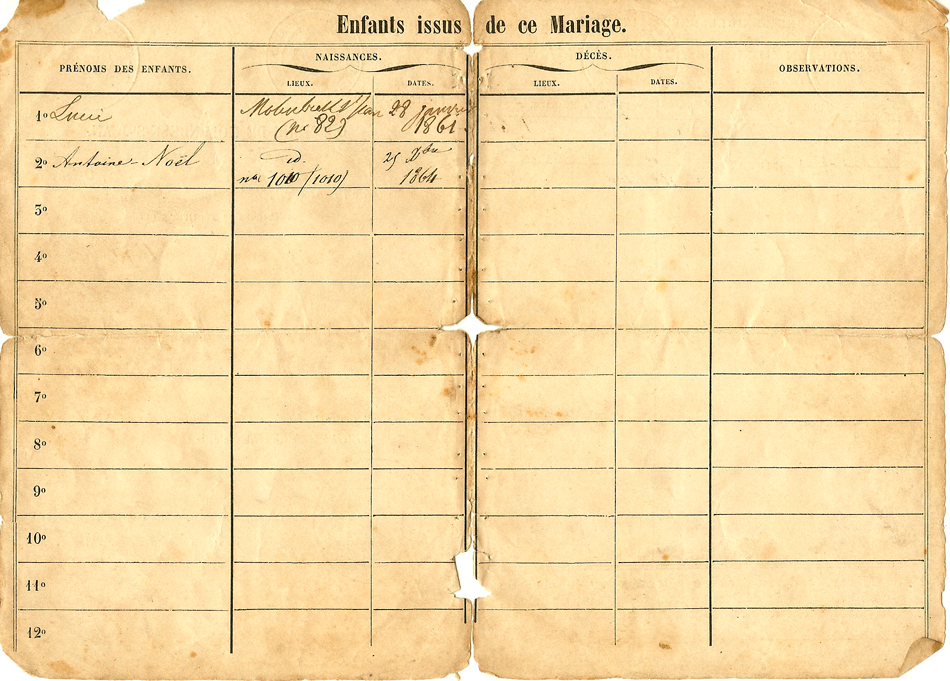 Enfants issus de ce Mariage.
PRÉNOMS DES ENFANTS.
NAISSANCES.
DÉCÈS.
OBSERVATIONS.
LIEUX.
DATES.
LIEUX.
DATES.
1º Lucie
Molenbeek St Jean 28 janvier
(no 82) 1861
2º Antoine-Noël
id. 25 Xbre
no 1010 (1010) 1864
3º
4º
5º
6º
7º
8º
9º
10º
11º
12º